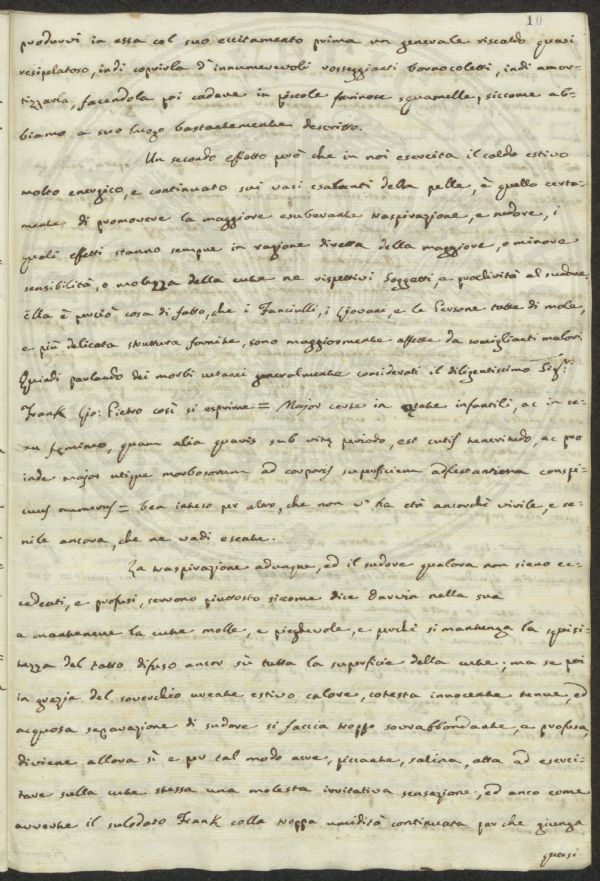 10
produrvi in essa col suo eccitamento prima un generale riscaldo quasi
resipelatoso, indi coprirla d'innumerevoli rosseggianti bornocoletti, indi amor-
tizzarla, facendola poi cadere in piccole farinose squamelle, siccome ab-
biamo a suo luogo bastantemente descritto.
Un secondo effetto però che in noi esercita il caldo estivo
molto energico, e continuato sui vasi esalanti della pelle, è quello certa-
mente di promovere la maggiore esuberante traspirazione, e sudore, i
quali effetti stanno sempre in ragione diretta della maggiore, o minore
sensibilità, o molezza della cute ne rispettivi Soggetti, e proclività al sudore.
Ella è perciò cosa di fatto, che i Fanciulli, i Giovani, e le Persone tutte di mole,
e più delicata struttura fornite, sono maggiormente affette da somiglianti malori.
Quindi parlando dei morbi cutanei generalmente considerati il diligentissimo Sigr.
Frank Gio: Pietro così si esprime = Major certe in ætate infantili, ac in se-
xu fæmineo, quam alia quavis sub vitæ periodo, est cutis teneritudo, ac pro
inde major utique morbosorum ad corporis superficiem conspi-
cuus numerus = ben inteso per altro, che non v'ha età ancorchè virile, e se-
nile ancora, che ne vadi esente.
La traspirazione adunque, ed il sudore qualora non sieno ec-
cedenti, e profusi, servono piuttosto siccome dice Darwin nella sua
a mantenere la cute molle, e pieghevole, e perchè si mantenga la squisi-
tezza del tatto difuso ancor sù tutta la superficie della cute; ma se poi
in grazia del soverchio urente estivo calore, cotesta innocente tenue, ed
acquosa separazione di sudore si faccia troppo sovrabbondante, e profusa,
diviene allora sì e per tal modo acre, piccante, salina, atta ad eserci-
tare sulla cute stessa una molesta irritativa sensazione, ed anco come
avverte il sulodato Frank colla troppa umidità continuata par che giunga
quasi